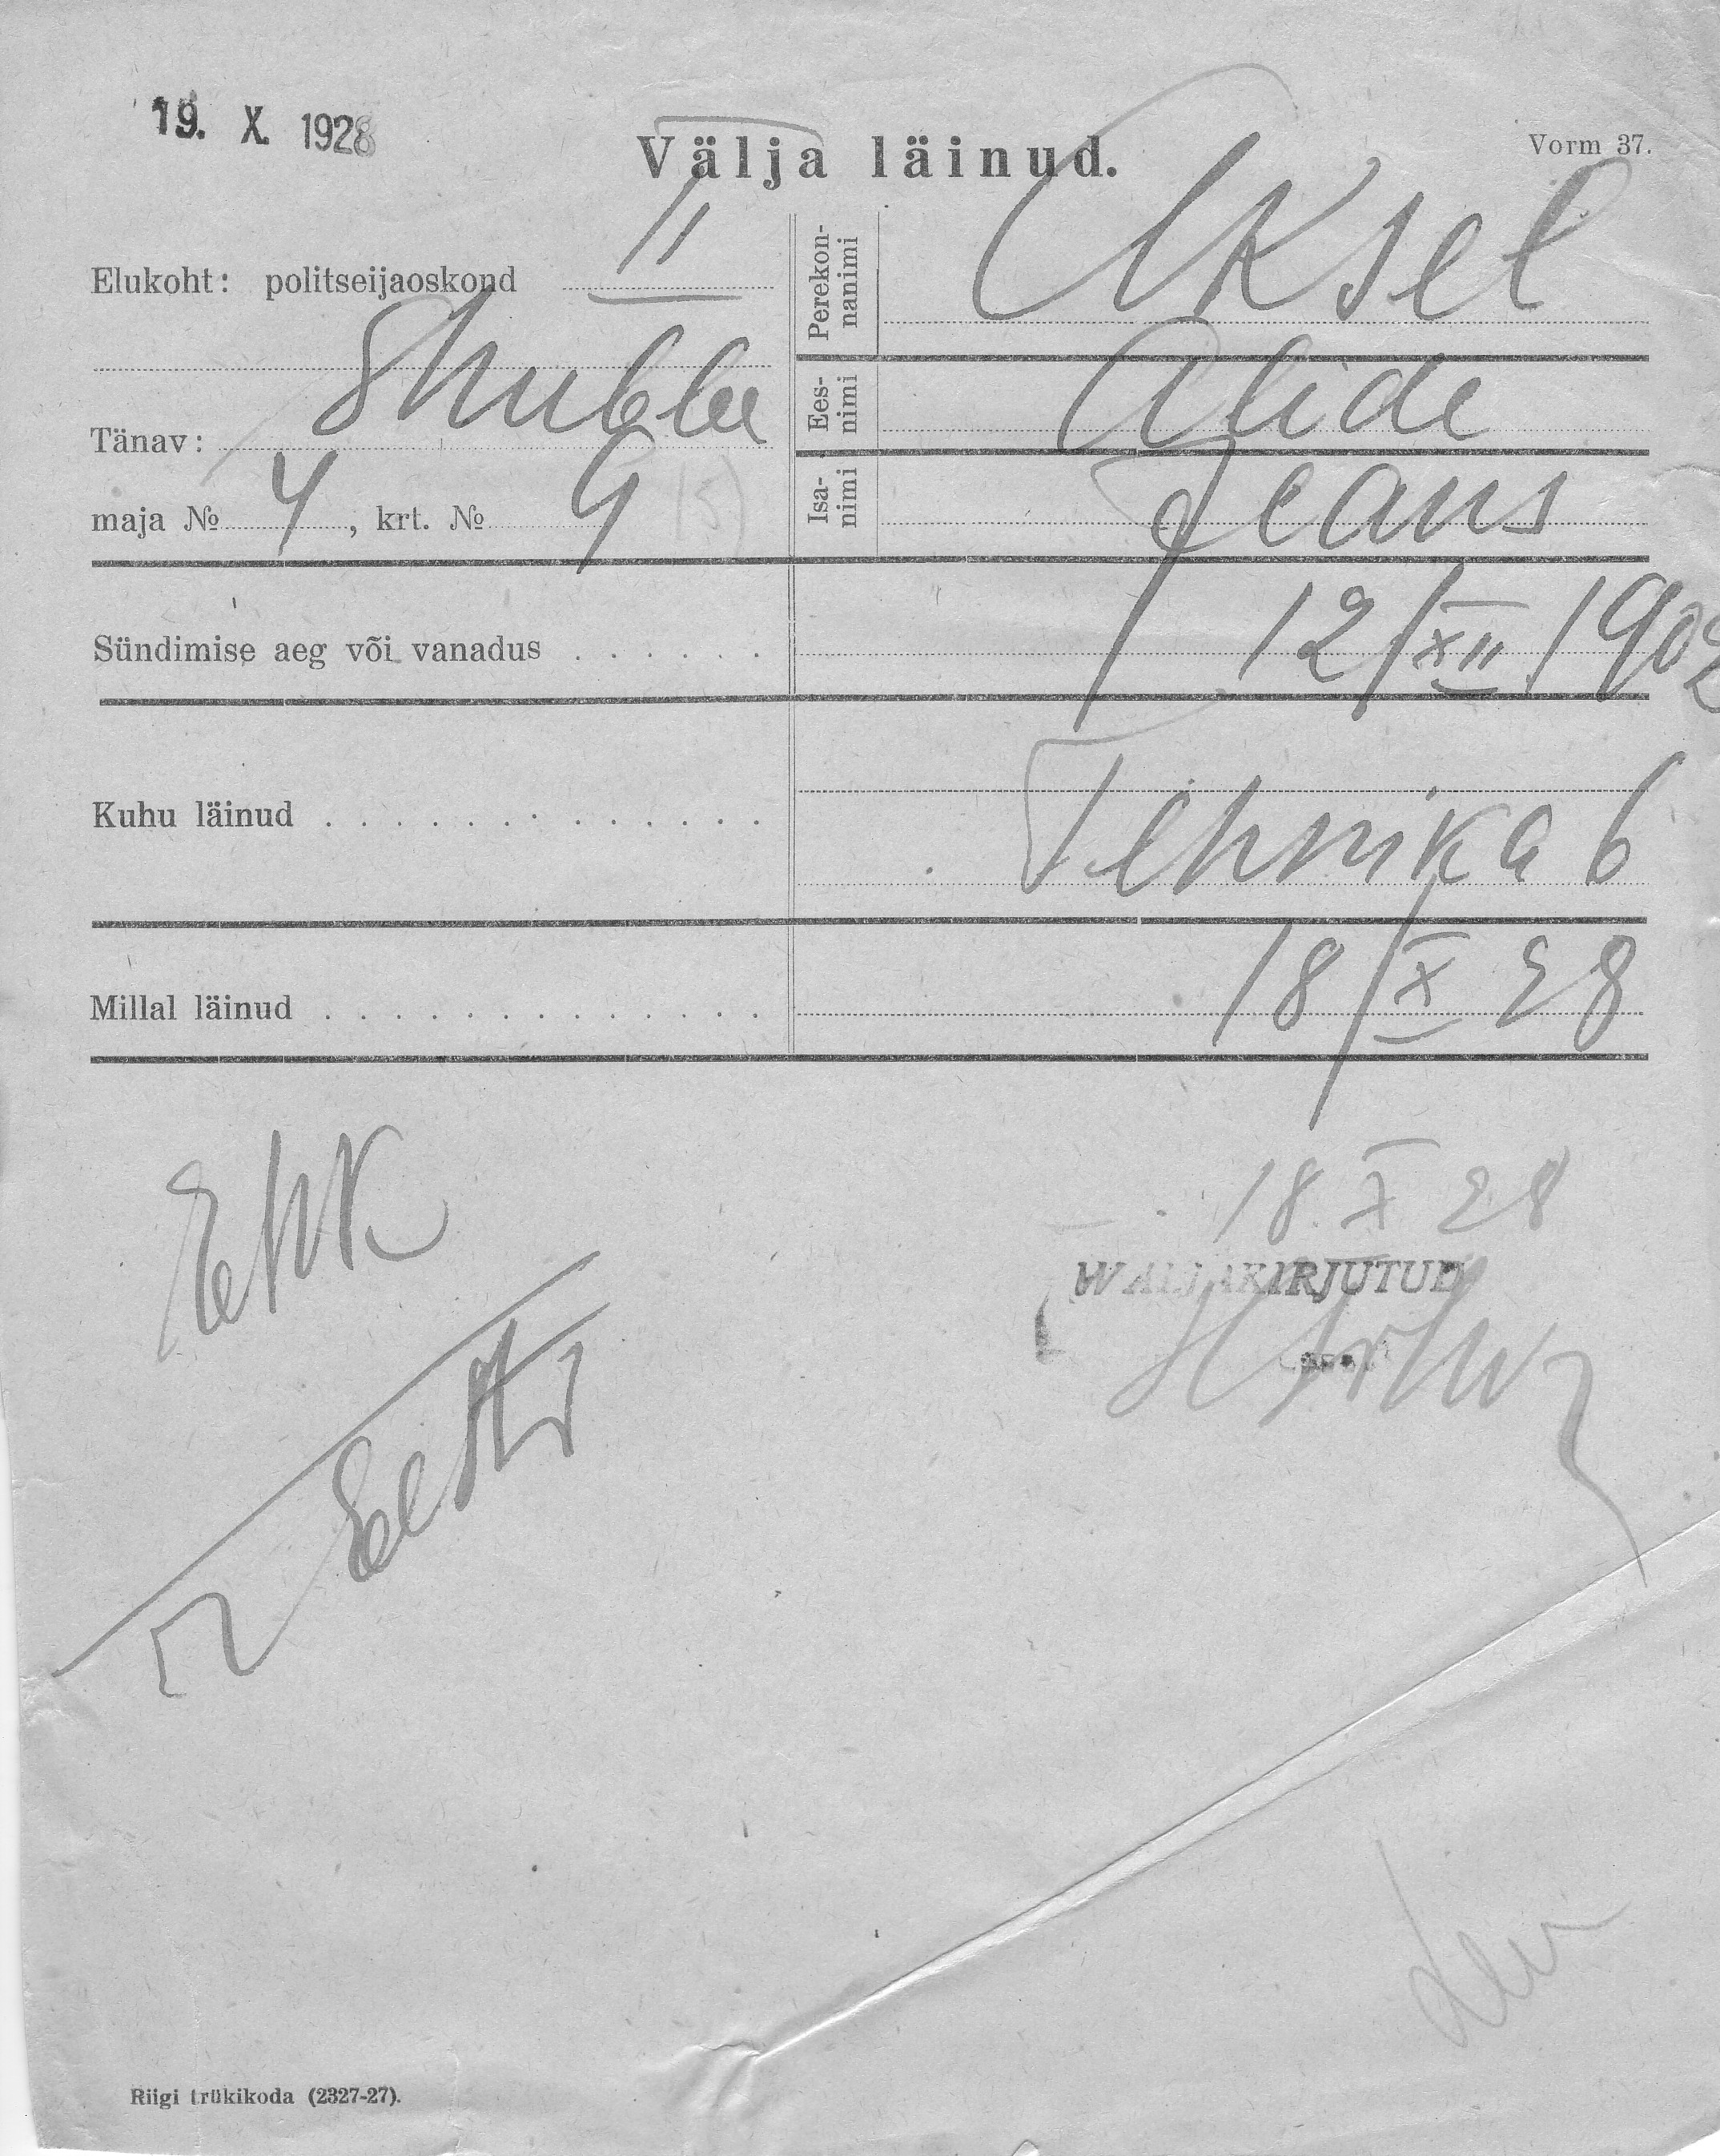 19. X. 1928
Välja läinud.
Vorm 37.
Elukoht: politseijaoskond II
Tänav:
maja № 4, krt. № 9 (5)
Perekon-
nanimi
Aksel
Ees-
nimi
Alide
Isa-
nimi
Jeans
Sündimise aeg või vanadus . . . . . . 12/XII 1902
Kuhu läinud . . . . . . . . . . . . . Tehnika 6
Millal läinud . . . . . . . . . . . . . 18/X 28
18. X 28
WALJAKIRJUTUD
Eesti
Riigi trükikoda (2327-27).